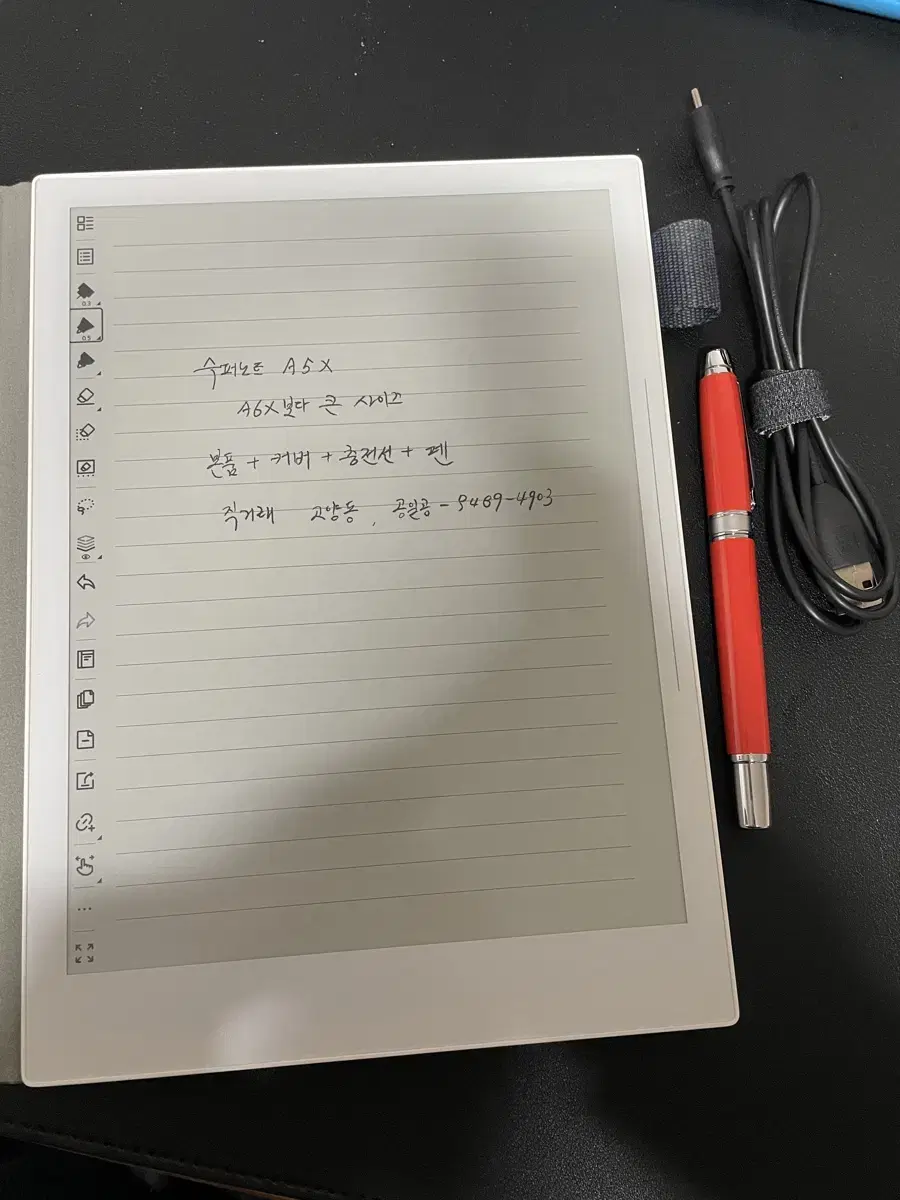 수퍼노트 A5X
A6X보다 큰 사이즈
본품 + 커버 + 충전선 + 펜
직거래 고양동, 공일공-9469-4903
0.3
0.5